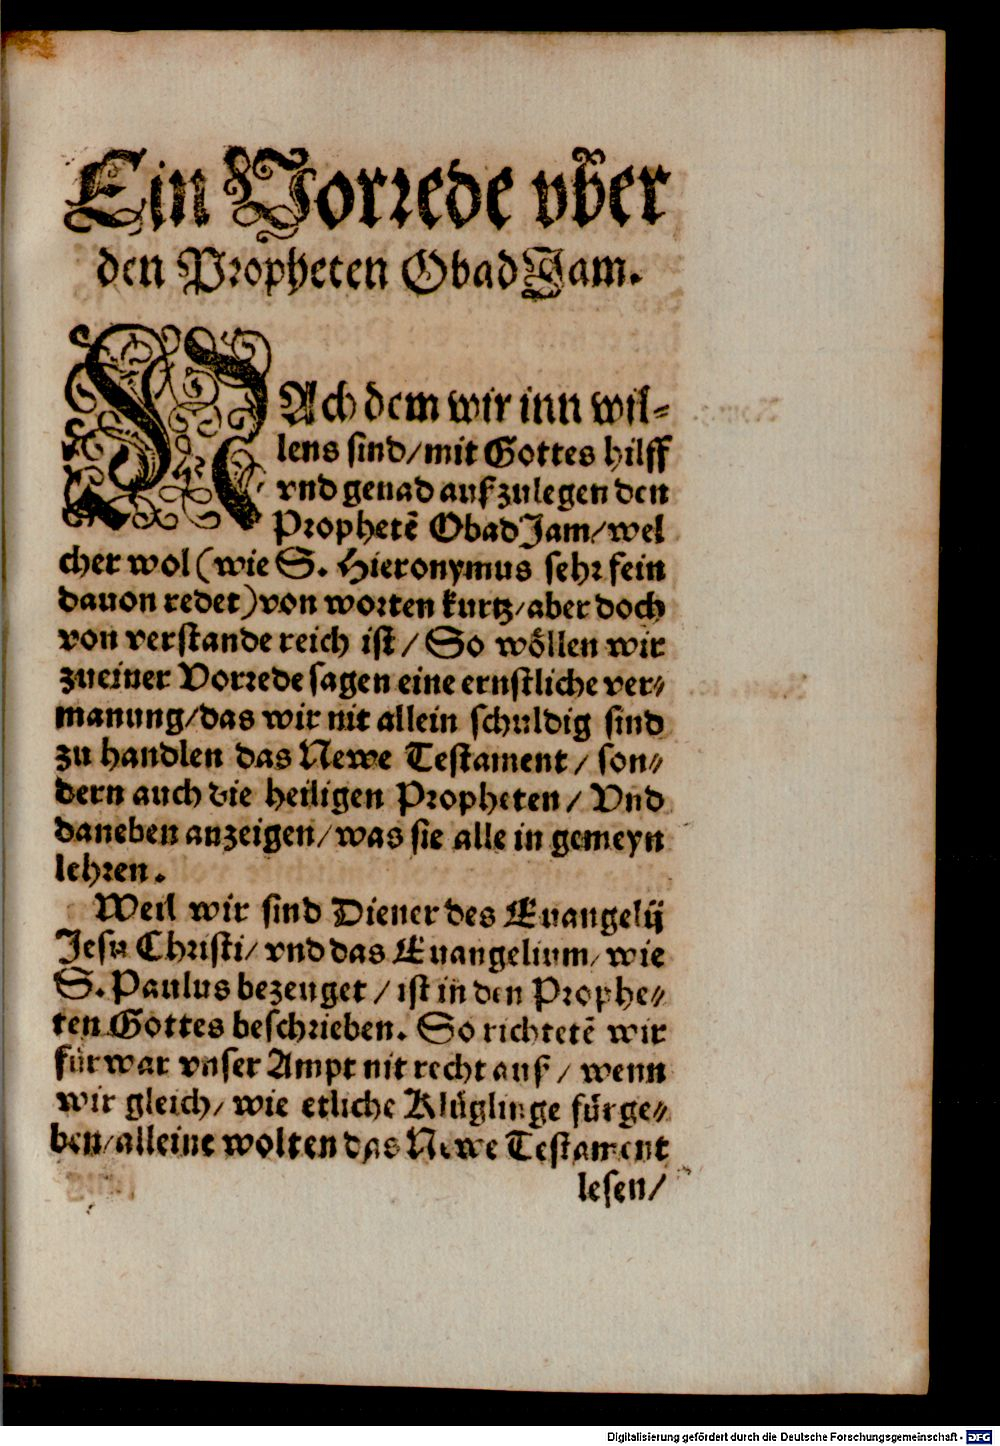 Ein Vorrede vber
den Propheten ObadJam.
NAch dem wir inn wil⸗
lens sind/mit Gottes hilff
vnd genad außzulegen den
Prophetē ObadJam/wel
cher wol (wie S. Hieronymus sehr fein
dauon redet) von worten kurtz/aber doch
von verstande reich ist/ So wöllen wir
zu einer Vorrede sagen eine ernstliche ver⸗
manung/das wir nit allein schuldig sind
zu handlen das Newe Testament/ son⸗
dern auch die heiligen Propheten/ Vnd
daneben anzeigen/was sie alle in gemeyn
lehren.
Weil wir sind Diener des Euangelij
Jesu Christi/ vnd das Euangelium/ wie
S. Paulus bezeuget/ ist in den Prophe⸗
ten Gottes beschrieben. So richtetē wir
fürwar vnser Ampt nit recht auß/ wenn
wir gleich/ wie etliche Klüglinge fürge⸗
ben/alleine wolten das Newe Testament
lesen/
Digitalisierung gefördert durch die Deutsche Forschungsgemeinschaft - DFG